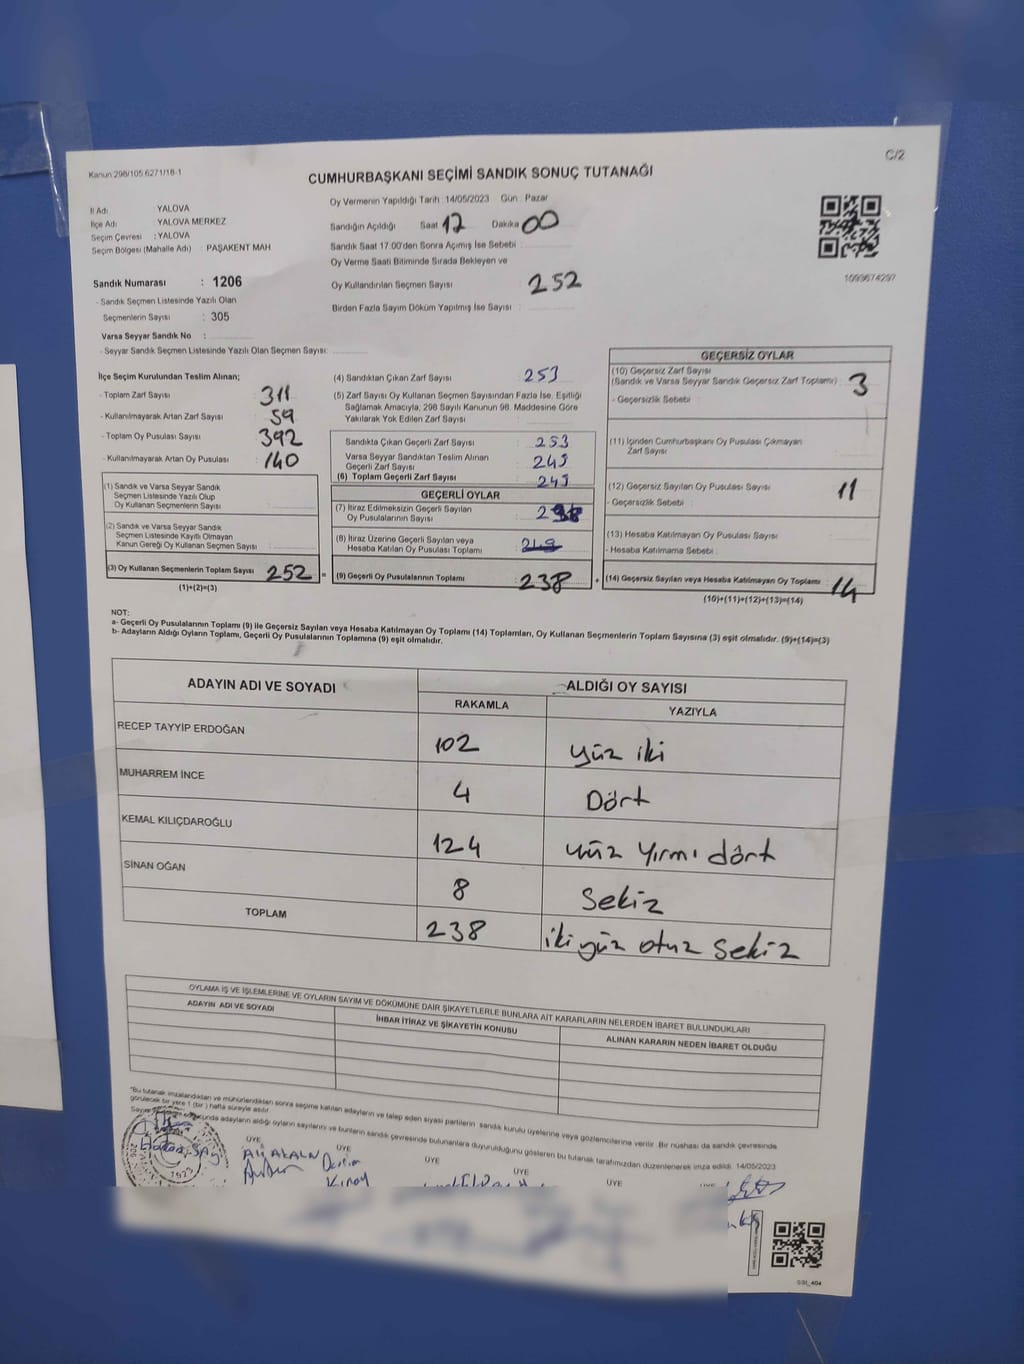 C/2
Kanun:298/105 6271/18-1
CUMHURBAŞKANI SEÇİMİ SANDIK SONUÇ TUTANAĞI
İl Adı YALOVA
İlçe Adı YALOVA MERKEZ
Seçim Çevresi : YALOVA
Seçim Bölgesi (Mahalle Adı) : PAŞAKENT MAH
Sandık Numarası : 1206
- Sandık Seçmen Listesinde Yazılı Olan
Seçmenlerin Sayısı : 305
Varsa Seyyar Sandık No :
- Seyyar Sandık Seçmen Listesinde Yazılı Olan Seçmen Sayısı:
Oy Vermenin Yapıldığı Tarih :14/05/2023 Gün : Pazar
Sandığın Açıldığı Saat 17 Dakika 00
Sandık Saat 17:00'den Sonra Açımış İse Sebebi :
Oy Verme Saati Bitiminde Sırada Bekleyen ve
Oy Kullandırılan Seçmen Sayısı : 252
Birden Fazla Sayım Döküm Yapılmış İse Sayısı :
1099674297
İlçe Seçim Kurulundan Teslim Alınan;
- Toplam Zarf Sayısı : 311
- Kullanılmayarak Artan Zarf Sayısı : 59
- Toplam Oy Pusulası Sayısı : 392
- Kullanılmayarak Artan Oy Pusulası : 140
(1) Sandık ve Varsa Seyyar Sandık
Seçmen Listesinde Yazılı Olup
Oy Kullanan Seçmenlerin Sayısı :
(2) Sandık ve Varsa Seyyar Sandık
Seçmen Listesinde Kayıtlı Olmayan
Kanun Gereği Oy Kullanan Seçmen Sayısı :
(3) Oy Kullanan Seçmenlerin Toplam Sayısı 252 =
(1)+(2)=(3)
(4) Sandıktan Çıkan Zarf Sayısı : 253
(5) Zarf Sayısı Oy Kullanan Seçmen Sayısından Fazla İse, Eşitliği
Sağlamak Amacıyla, 298 Sayılı Kanunun 98. Maddesine Göre
Yakılarak Yok Edilen Zarf Sayısı :
Sandıkta Çıkan Geçerli Zarf Sayısı : 253
Varsa Seyyar Sandıktan Teslim Alınan
Geçerli Zarf Sayısı : 249
(6) Toplam Geçerli Zarf Sayısı : 249
GEÇERLİ OYLAR
(7) İtiraz Edilmeksizin Geçerli Sayılan
Oy Pusulalarının Sayısı : 238
(8) İtiraz Üzerine Geçerli Sayılan veya
Hesaba Katılan Oy Pusulası Toplamı :
(9) Geçerli Oy Pusulalarının Toplamı : 238 +
GEÇERSİZ OYLAR
(10) Geçersiz Zarf Sayısı
(Sandık ve Varsa Seyyar Sandık Geçersiz Zarf Toplamı) : 3
- Geçersizlik Sebebi :
(11) İçinden Cumhurbaşkanı Oy Pusulası Çıkmayan
Zarf Sayısı
(12) Geçersiz Sayılan Oy Pusulası Sayısı : 11
- Geçersizlik Sebebi :
(13) Hesaba Katılmayan Oy Pusulası Sayısı :
- Hesaba Katılmama Sebebi :
(14) Geçersiz Sayılan veya Hesaba Katılmayan Oy Toplamı : 14
(10)+(11)+(12)+(13)=(14)
NOT:
a- Geçerli Oy Pusulalarının Toplamı (9) ile Geçersiz Sayılan veya Hesaba Katılmayan Oy Toplamı (14) Toplamları, Oy Kullanan Seçmenlerin Toplam Sayısına (3) eşit olmalıdır. (9)+(14)=(3)
b- Adayların Aldığı Oyların Toplamı, Geçerli Oy Pusulalarının Toplamına (9) eşit olmalıdır.
ADAYIN ADI VE SOYADI ALDIĞI OY SAYISI
RAKAMLA YAZIYLA
RECEP TAYYİP ERDOĞAN 102 yüz iki
MUHARREM İNCE 4 Dört
KEMAL KILIÇDAROĞLU 124 yüz yirmi dört
SİNAN OĞAN 8 Sekiz
TOPLAM 238 iki yüz otuz sekiz
OYLAMA İŞ VE İŞLEMLERİNE VE OYLARIN SAYIM VE DÖKÜMÜNE DAİR ŞİKAYETLERLE BUNLARA AİT KARARLARIN NELERDEN İBARET BULUNDUKLARI
ADAYIN ADI VE SOYADI İHBAR İTİRAZ VE ŞİKAYETİN KONUSU ALINAN KARARIN NEDEN İBARET OLDUĞU
"Bu tutanak imzalandıktan ve mühürlendikten sonra seçime katılan adayların ve talep eden siyasi partilerin sandık kurulu üyelerine veya gözlemcilerine verilir. Bir nüshası da sandık çevresinde
görülecek bir yere 1 (bir) hafta süreyle asılır
adayların aldığı oyların sayılarını ve bunların sandık çevresinde bulunanlara duyurulduğunu gösteren bu tutanak tarafımızdan düzenlenerek imza edildi. 14/05/2023
ÜYE ÜYE ÜYE ÜYE ÜYE
1923